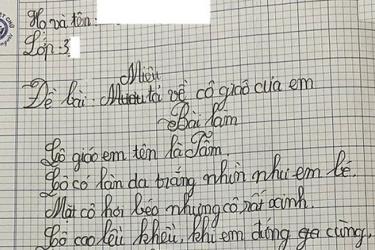 Họ và tên:
Lớp: 3
Miêu
Đề bài: tả về cô giáo của em
Bài làm
Cô giáo em tên là Tâm.
Cô có làn da trắng nhìn như em bé.
Mặt cô hơi béo nhưng cô rất xinh.
Cô cao lêu khêu, khi em đứng ga cùng,